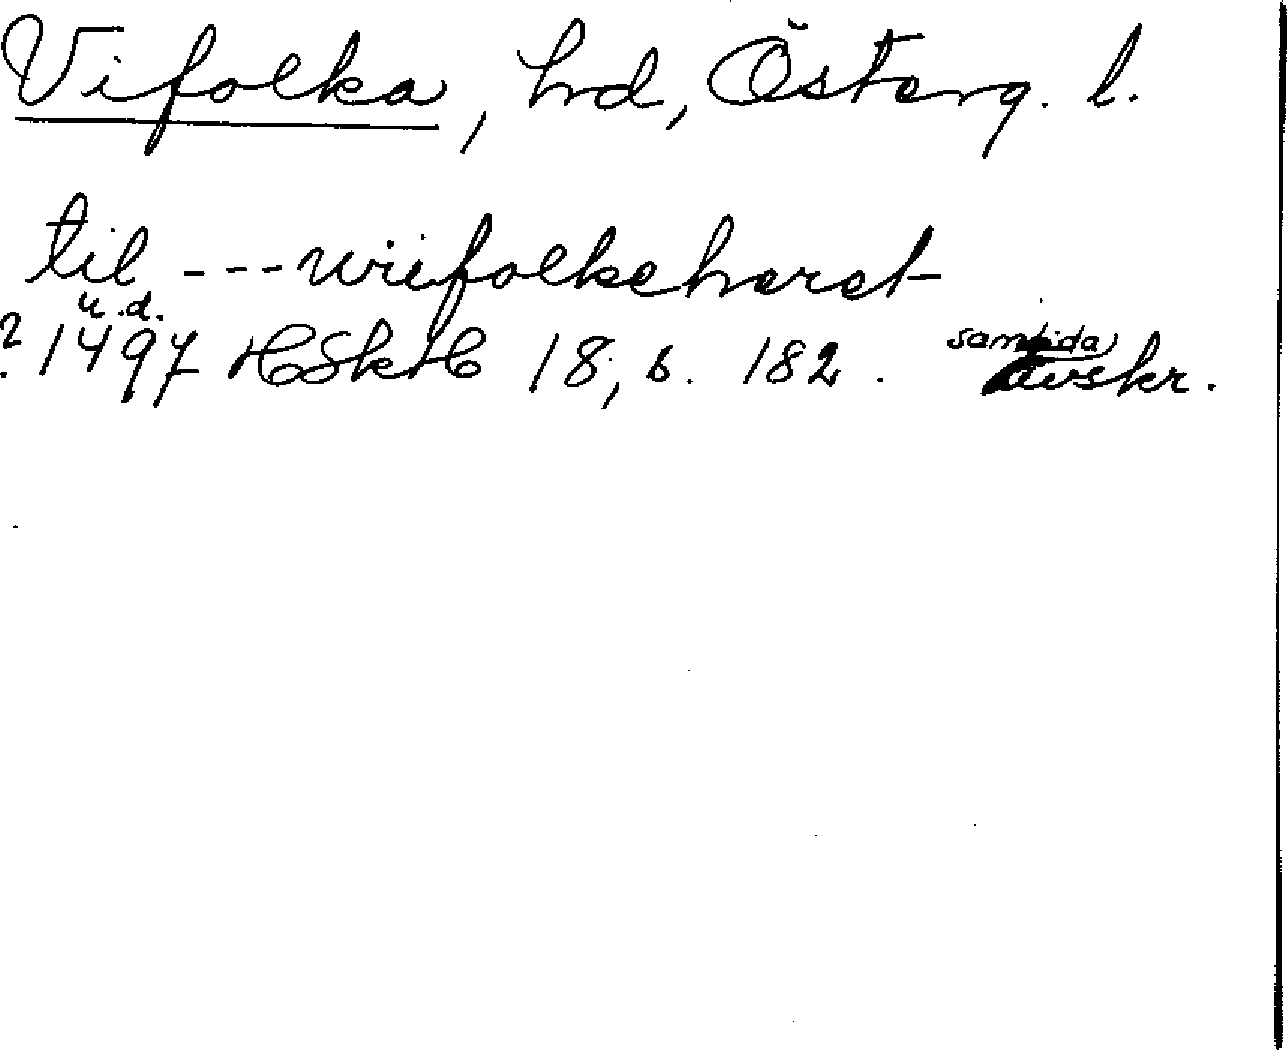 Vifolka, hd, Österg. l.
til --- wiefolkeharet
u.d.
? 1497 HSkH 18, s. 182. samtida avskr.